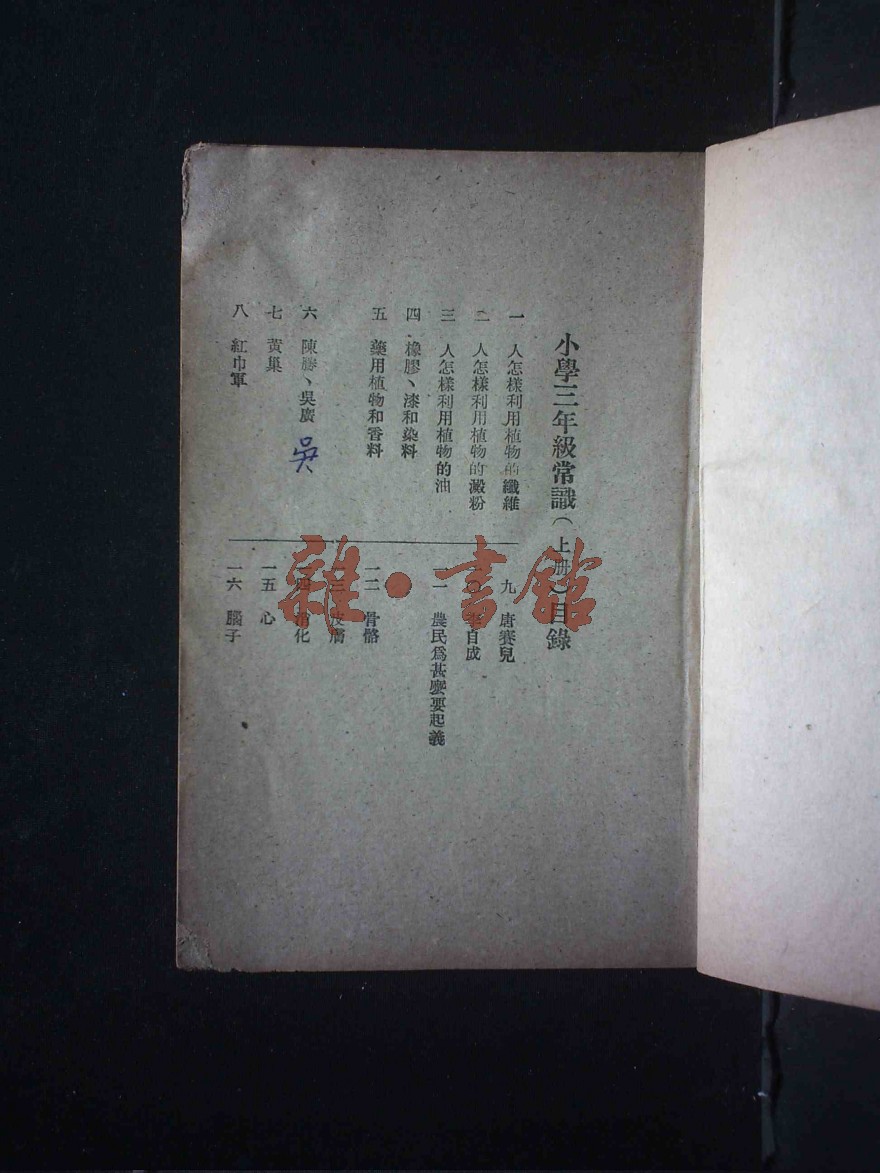 小學三年級常識（上册）目錄
一　人怎樣利用植物的纖維
二　人怎樣利用植物的澱粉
三　人怎樣利用植物的油
四　橡膠、漆和染料
五　藥用植物和香料
六　陳勝、吳廣
吳
七　黃巢
八　紅巾軍
九　唐賽兒
一〇　李自成
一一　農民爲甚麽要起義
一二　骨骼
一三　皮膚
一四　消化
一五　心
一六　腦子
雜·書館